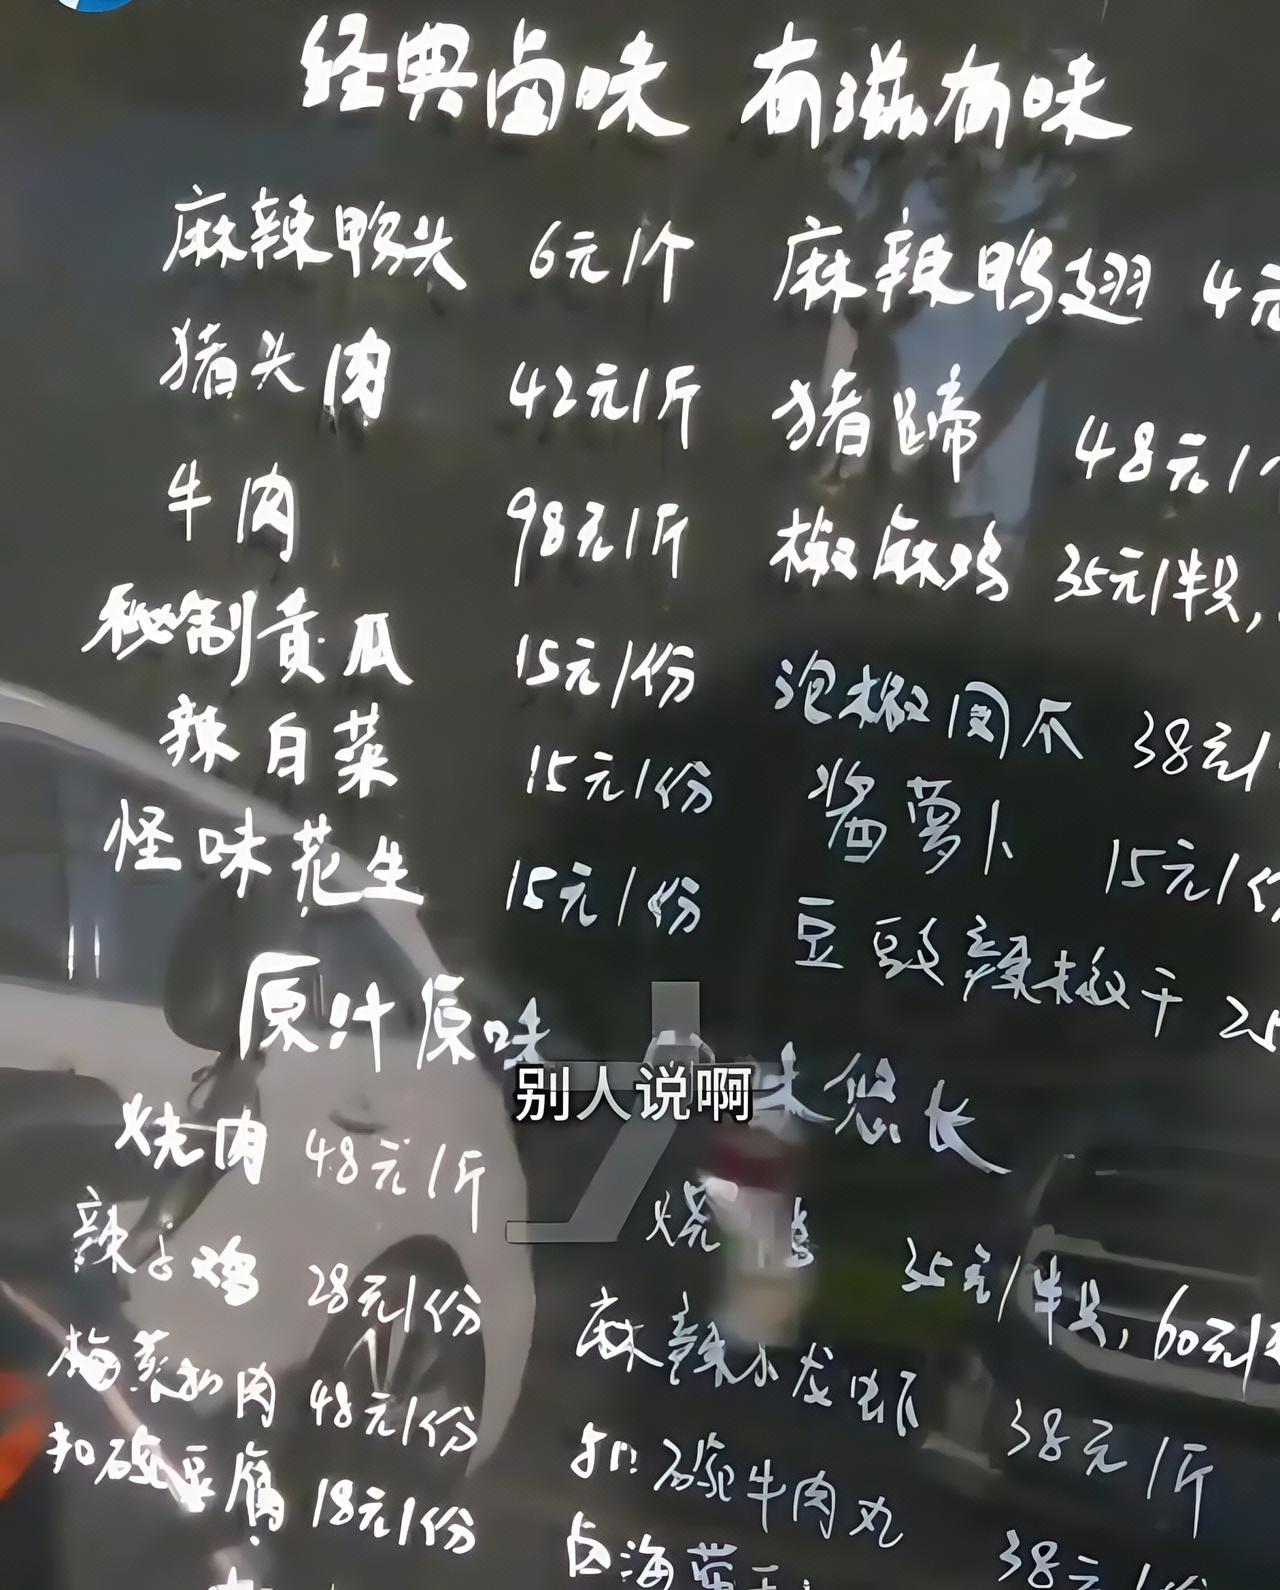 经典卤味 有滋有味
麻辣鸭头 6元/个 麻辣鸭翅 4元
猪头肉 42元/斤 猪蹄 48元/个
牛肉 98元/斤 椒麻鸡 35元/半只,
秘制黄瓜 15元/份 泡椒凤爪 38元/
辣白菜 15元/份 酱萝卜 15元/份
怪味花生 15元/份 豆豉辣椒干 25
原汁原味 味悠长
别人说啊
烧肉 48元/斤 烧 35元/半只, 60元/
辣子鸡 28元/份 麻辣小龙虾 38元/斤
梅菜扣肉 48元/份 扣碗牛肉丸 38元/份
扣碗豆腐 18元/份 卤海带